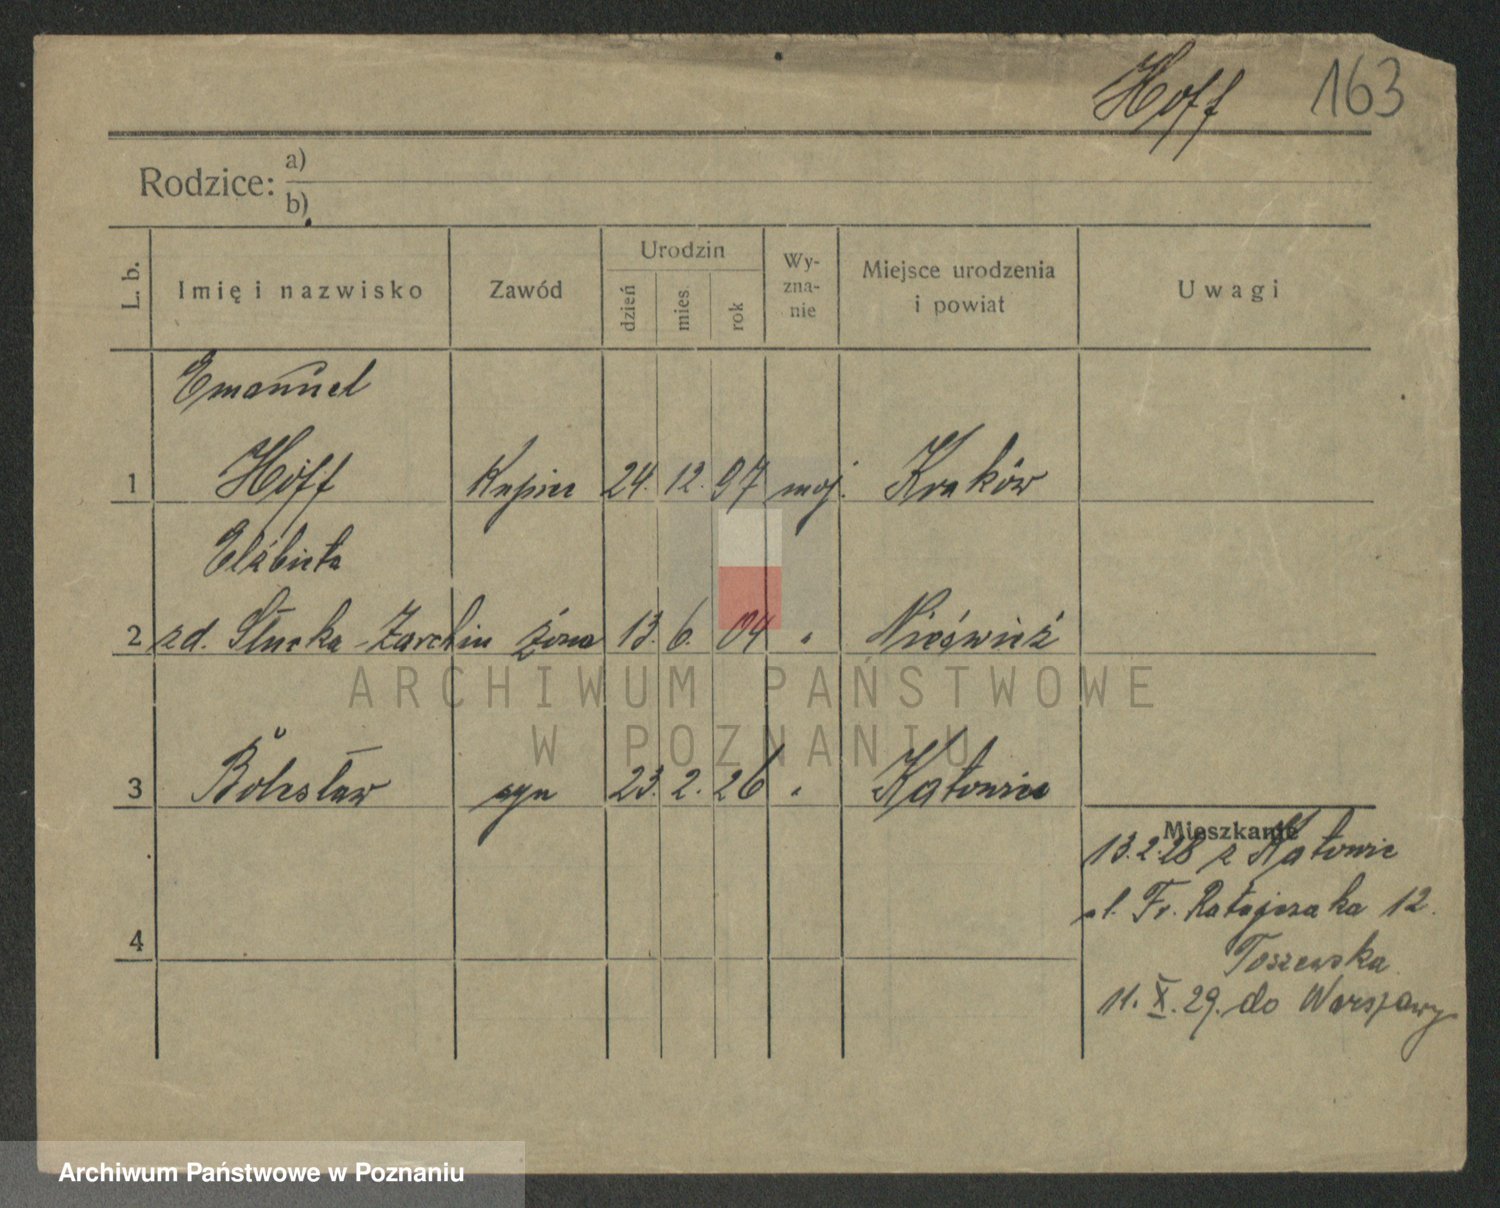 Hoff 163
Rodzice: a)
b)
L. b. Imię i nazwisko Zawód Urodzin dzień mies. rok Wy-zna-nie Miejsce urodzenia i powiat Uwagi
Emanuel
1 Hoff Kupiec 24. 12. 97 moj. Kraków
Elżbieta
2 zd. Słucka-Zarchin żona 13. 6. 04 " Nieśwież
3 Bolesław syn 23. 2. 26 " Katowice
Mieszkanie
13.2.28 z Katowic
ul. Fr. Ratajczaka 12.
4
Toszewska
11. X. 29. do Warszawy
ARCHIWUM PAŃSTWOWE
W POZNANIU
Archiwum Państwowe w Poznaniu